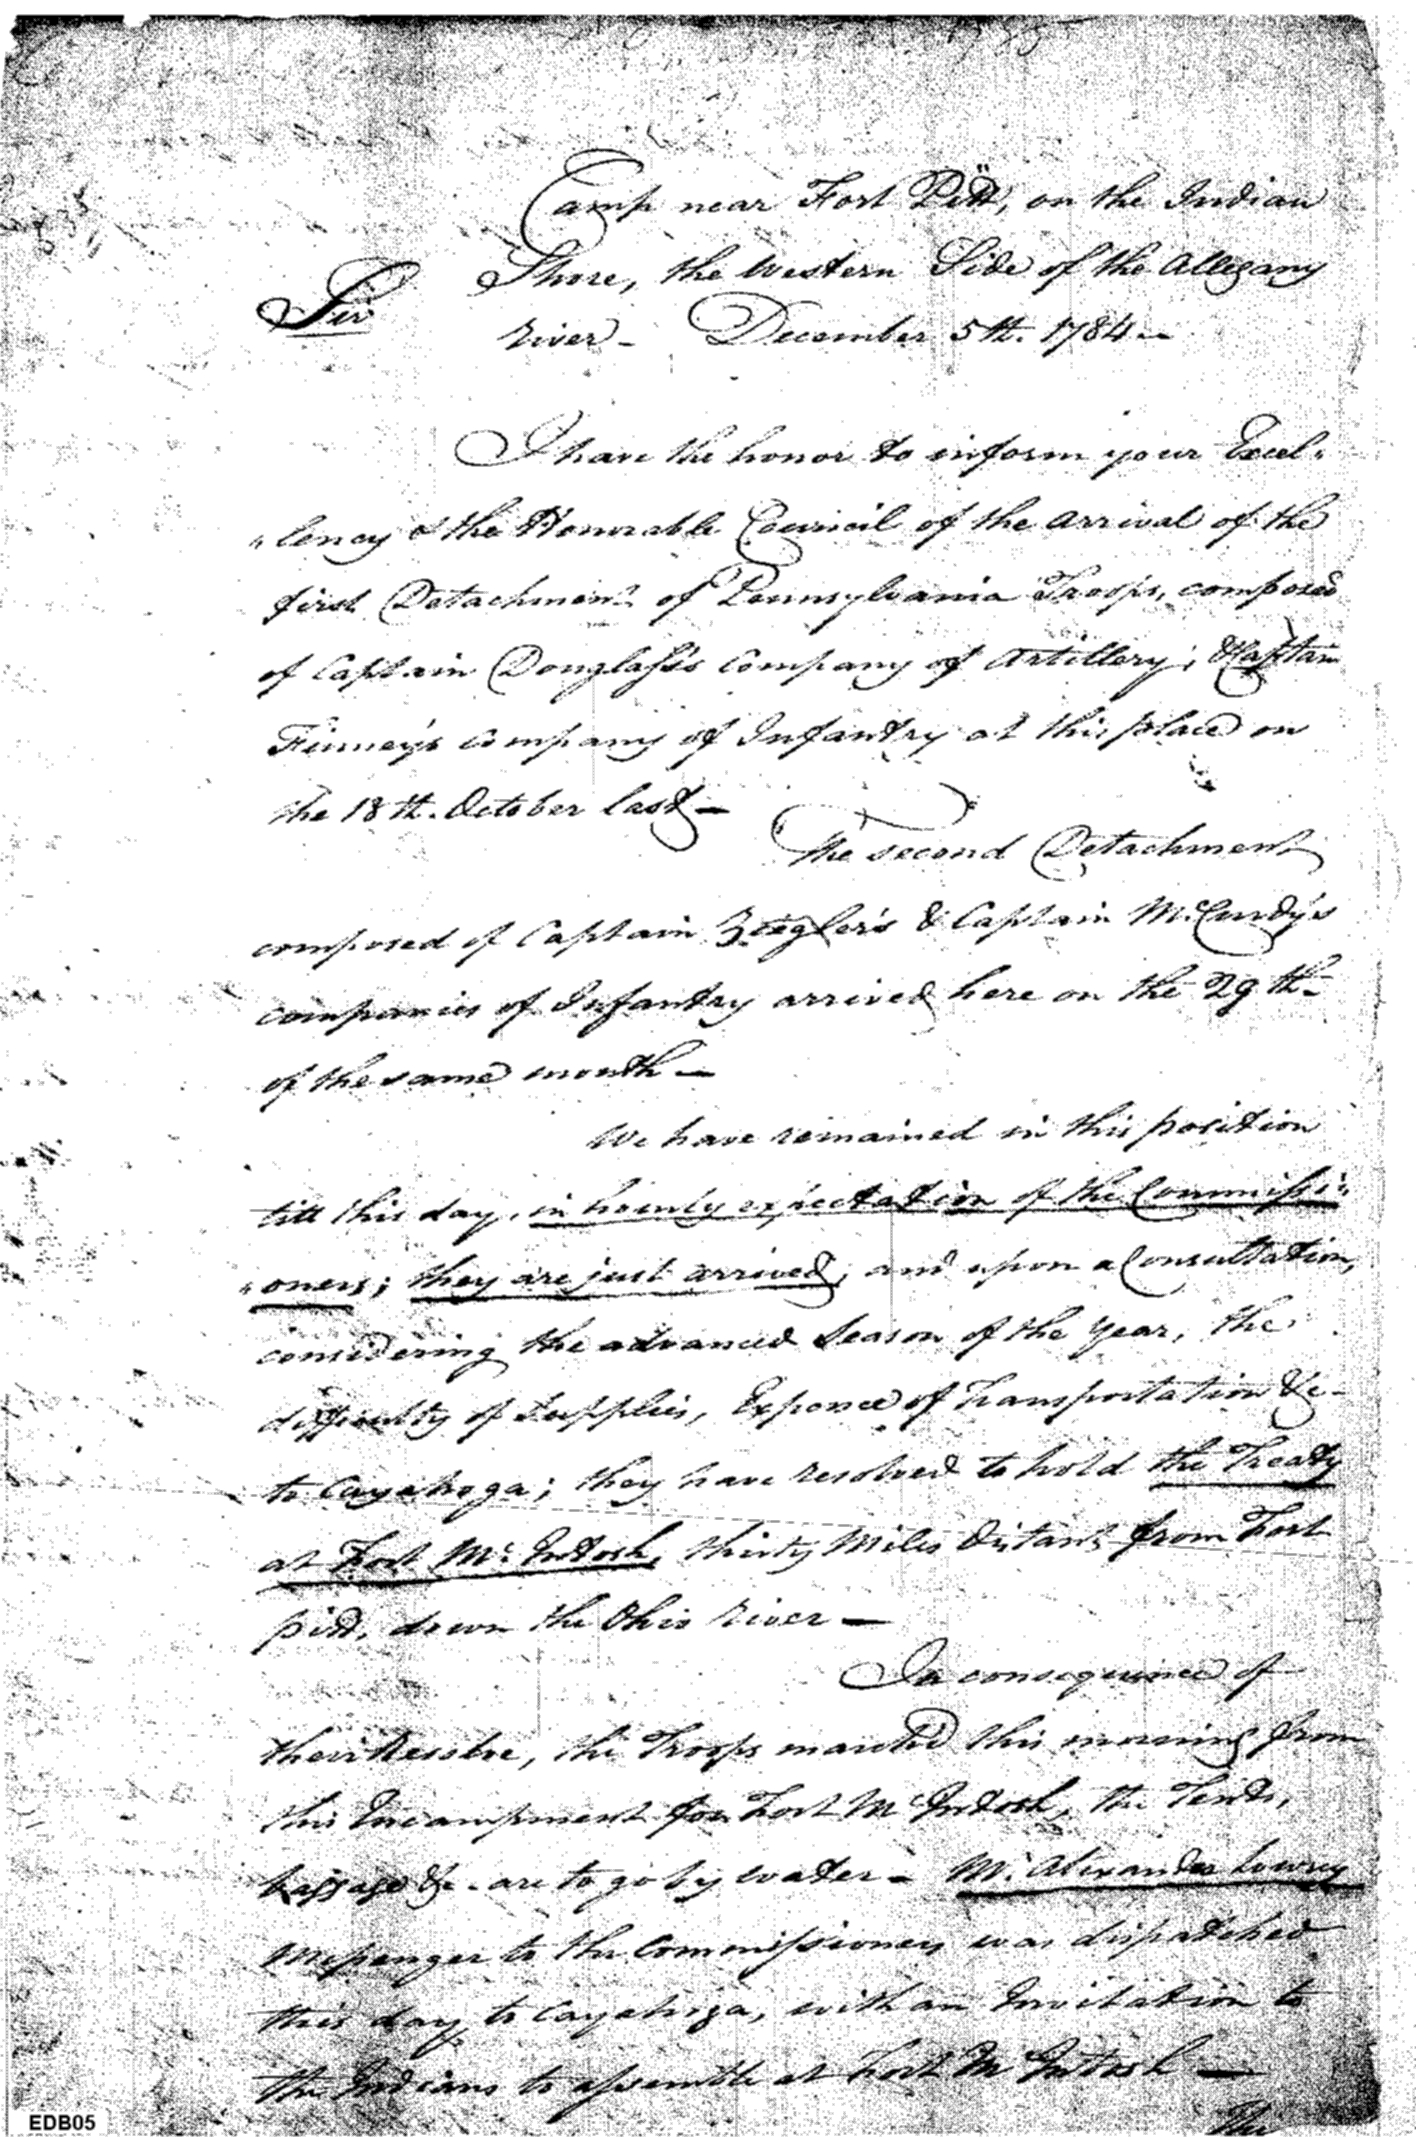 Camp near Fort Pitt, on the Indian
Shore, the Western Side of the Allegany
Sir
River - December 5th. 1784 -
I have the honor to inform your Excel-
-lency & the Honorable Council of the arrival of the
first Detachment of Pennsylvania Troops, composed
of Captain Douglass's Company of Artillery, & Captain
Finney's Company of Infantry at this place on
the 18th. October last -
The second Detachment
composed of Captain Zeigler's & Captain McCurdy's
companies of Infantry arrived here on the 29th-
of the same month -
We have remained in this position
till this day, in hourly expectation of the Commissi-
-oners; they are just arrived, and upon a Consultation,
considering the advanced Season of the Year, the
difficulty of Supplies, Expence of Transportation &c-
to Cayahoga; they have resolved to hold the Treaty
at Fort McIntosh, thirty Miles distant from Fort
pitt, down the Ohio River -
In consequence of
their Resolve, the Troops marched this morning from
this Incampment for Fort McIntosh, the Tents,
baggage &c. are to go by water - Mr. Alexander Lowrey
Messenger to the Commissioners was dispatched
this day to Cayahoga, with an Invitation to
the Indians to assemble at Fort McIntosh -
The
EDB05